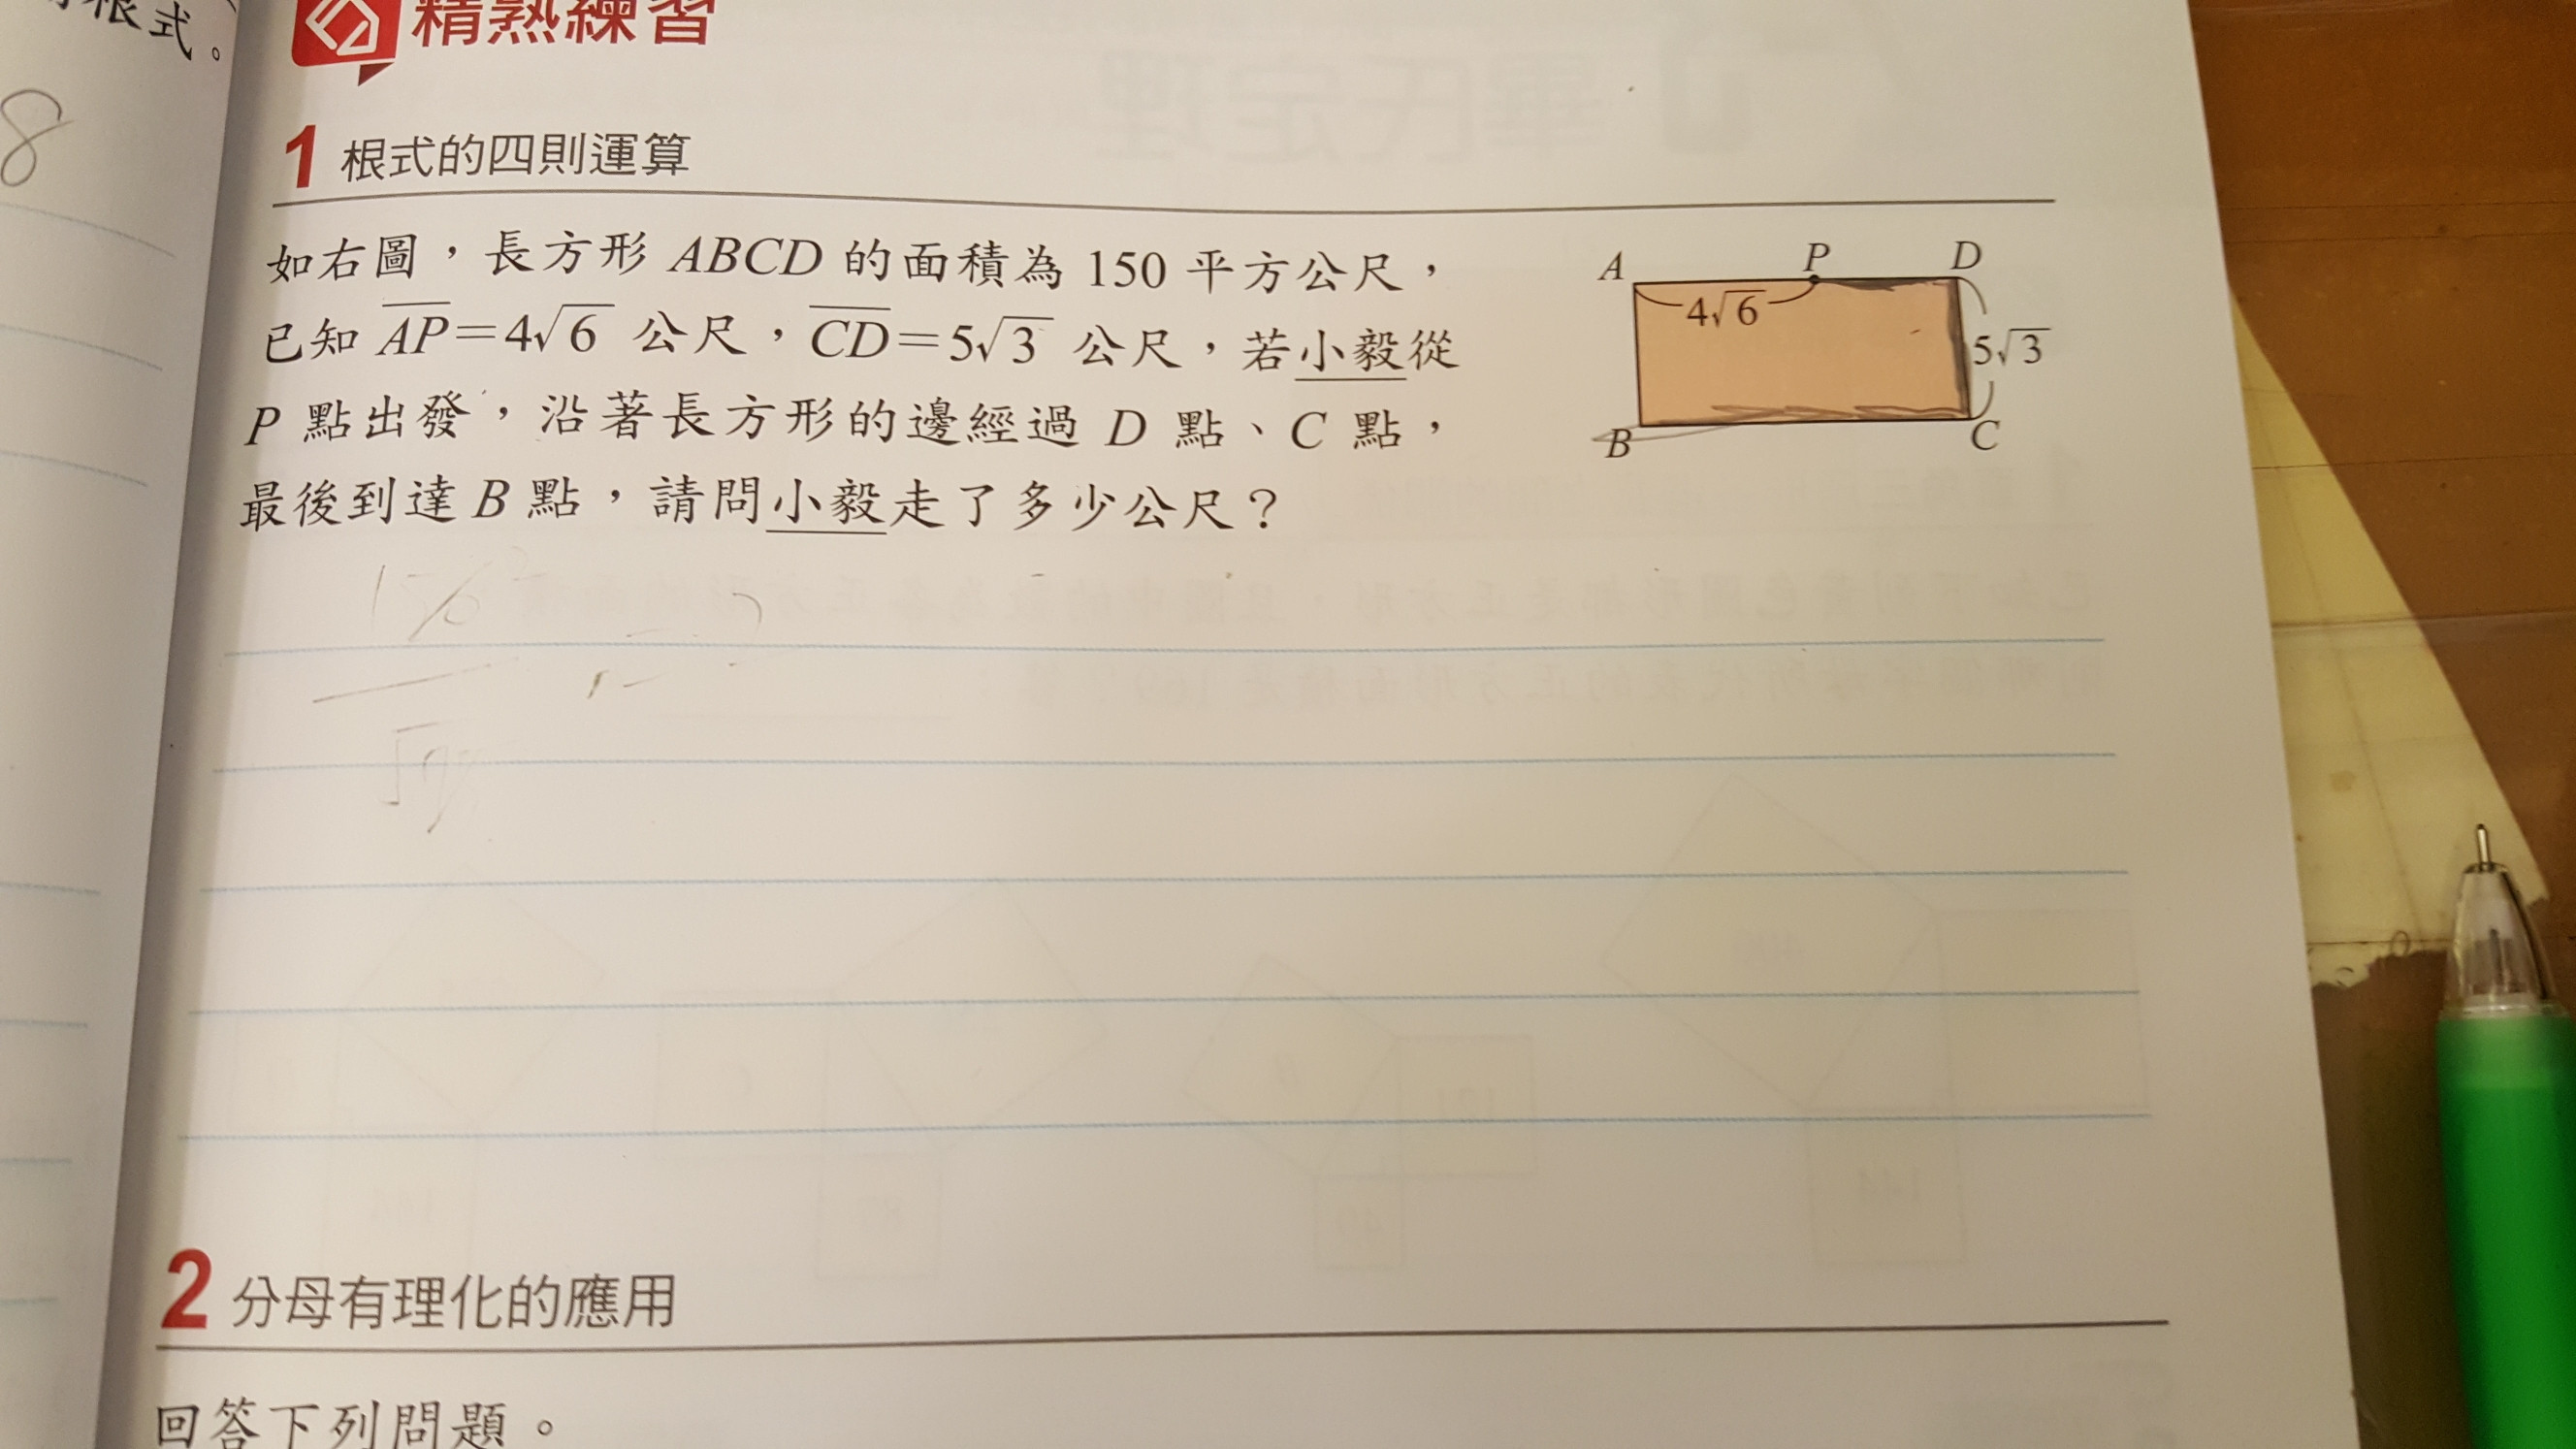 根式。
8
精熟練習
1 根式的四則運算
如右圖，長方形 ABCD 的面積為 150 平方公尺，
已知 AP=4√6 公尺，CD=5√3 公尺，若小毅從
P 點出發，沿著長方形的邊經過 D 點、C 點，
最後到達 B 點，請問小毅走了多少公尺？
A P D
4√6
5√3
B C
2 分母有理化的應用
回答下列問題。